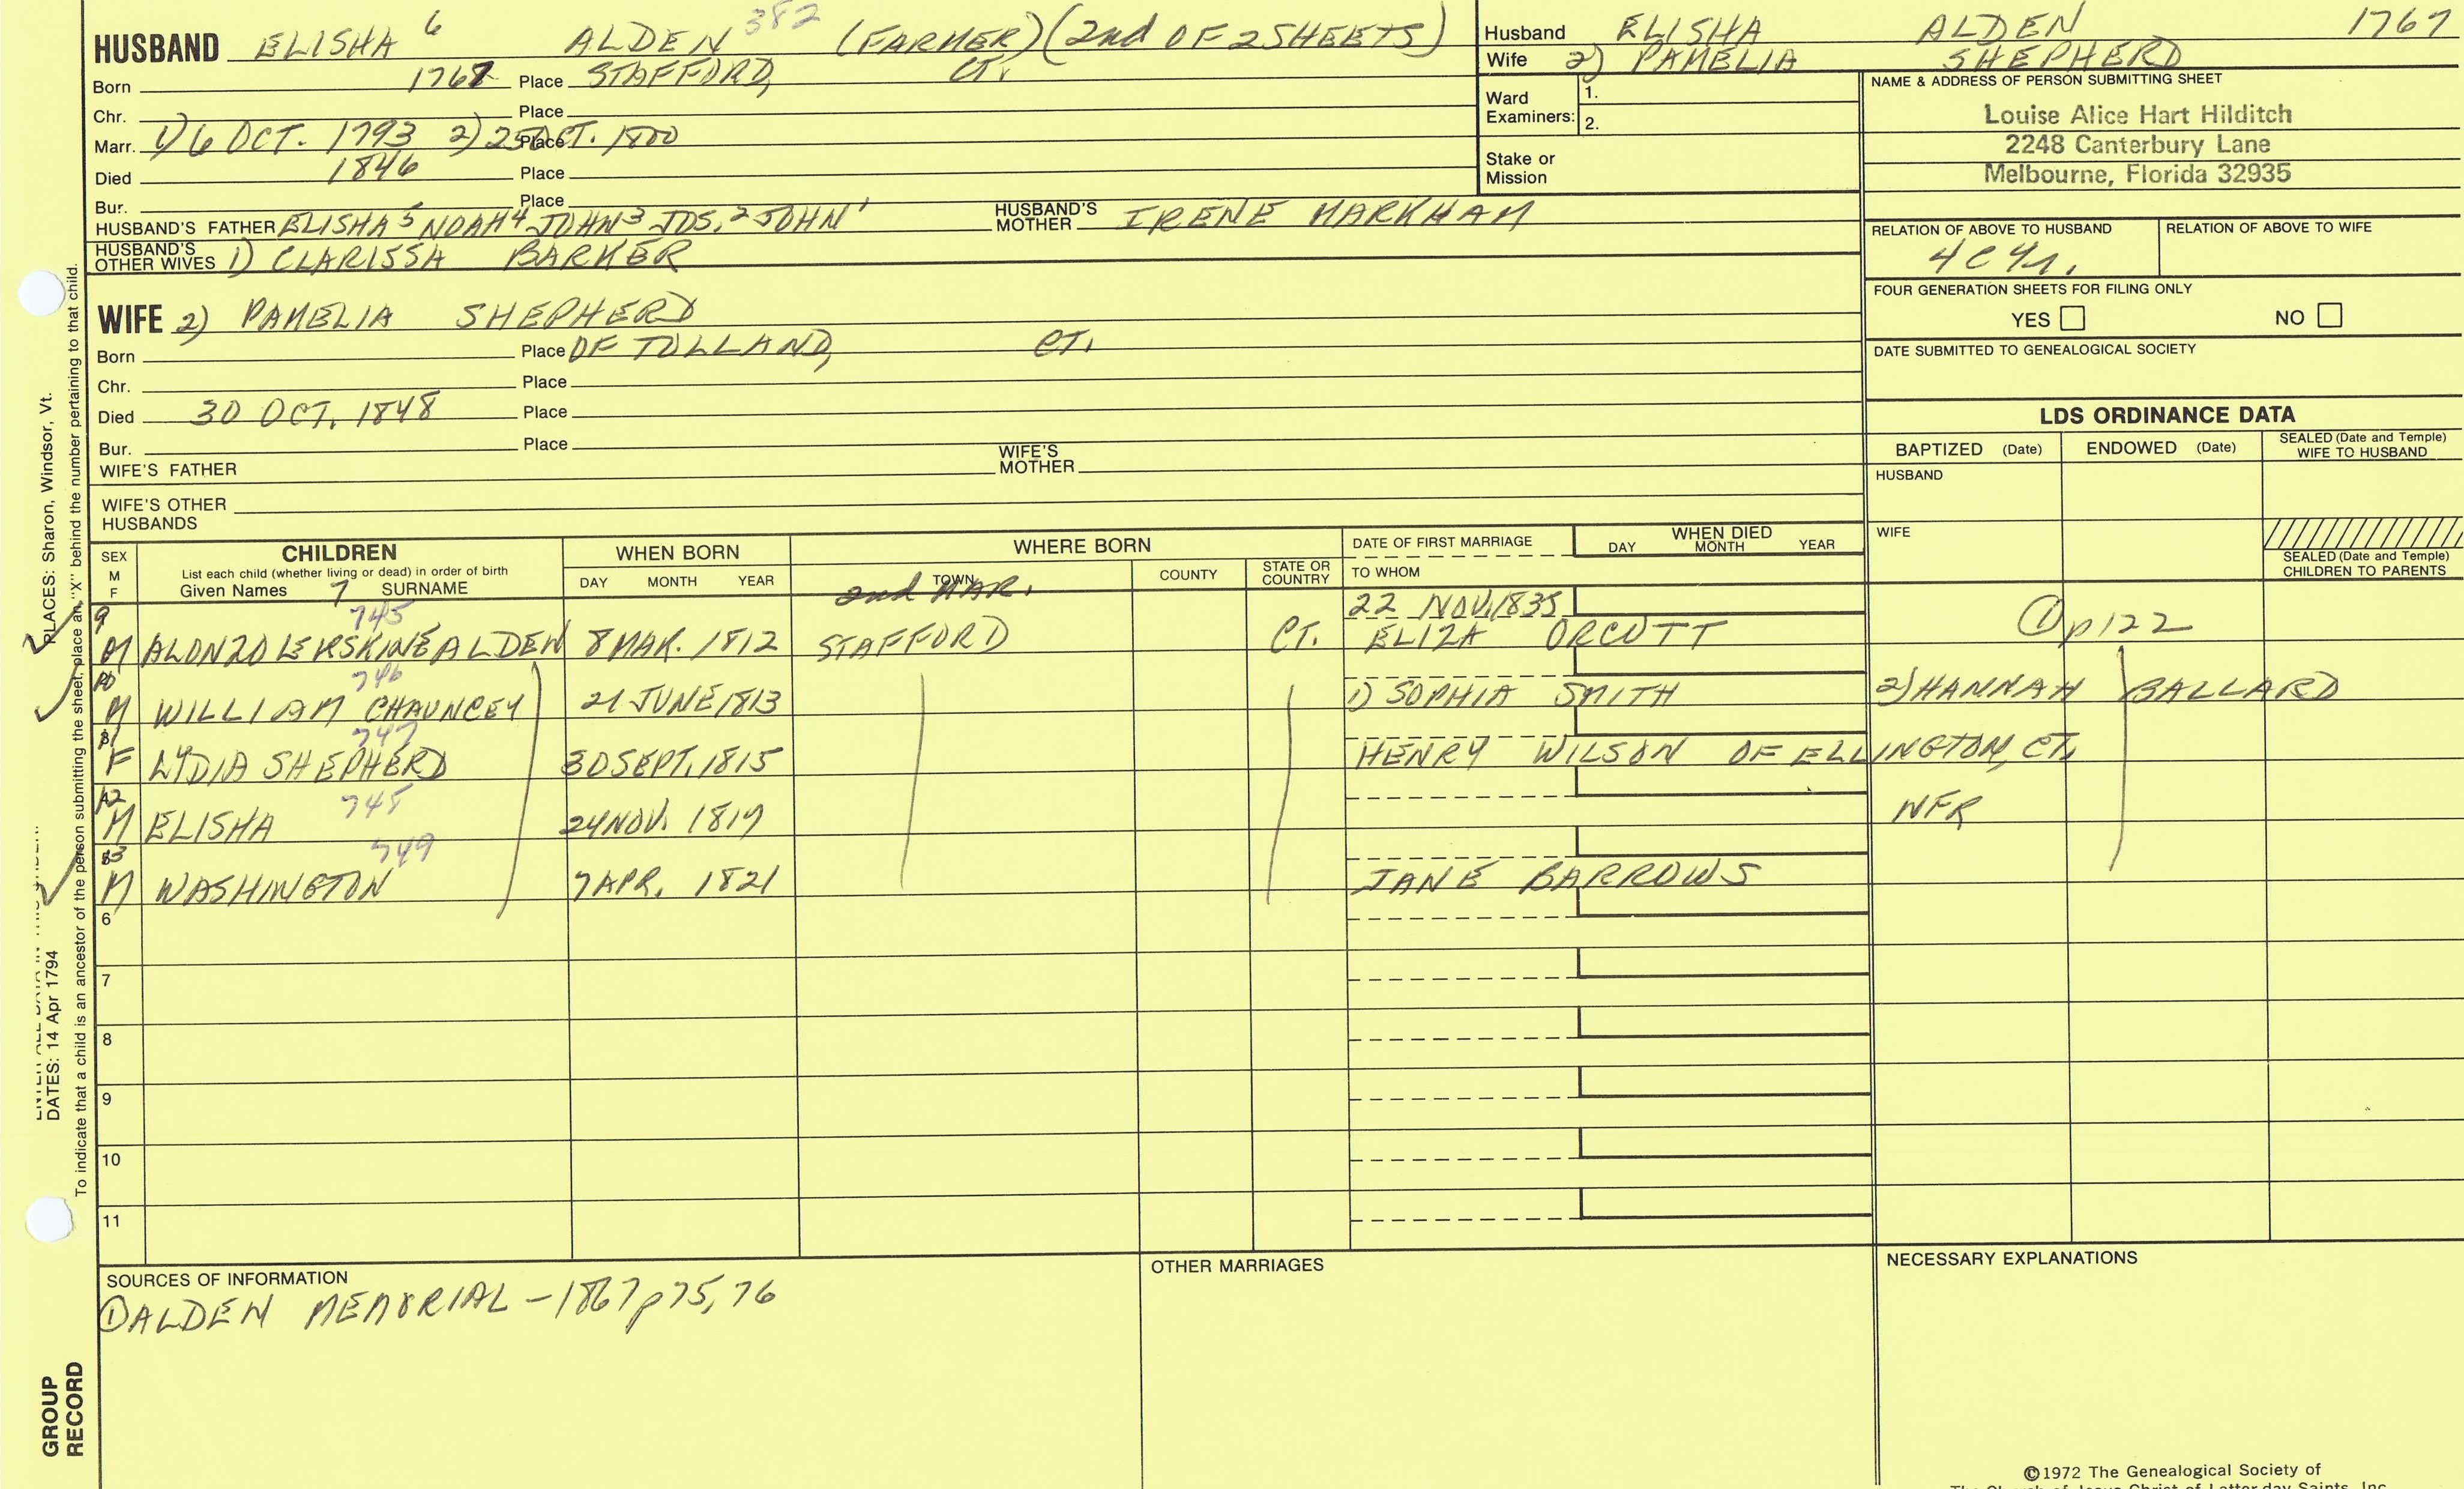 HUSBAND ELISHA 6 ALDEN 382 (FARMER) (2nd OF 2 SHEETS)
Born 1767 Place STAFFORD, CT.
Chr. Place
Marr. 1) 6 OCT. 1793 2) 25 OCT. 1800 Place
Died 1846 Place
Bur. Place
HUSBAND'S FATHER ELISHA 5 NOAH 4 JOHN 3 JOS. 2 JOHN 1 HUSBAND'S MOTHER IRENE MARKHAM
HUSBAND'S OTHER WIVES 1) CLARISSA BARKER
WIFE 2) PAMELIA SHEPHERD
Born Place OF TOLLAND, CT.
Chr. Place
Died 30 OCT. 1848 Place
Bur. Place
WIFE'S FATHER WIFE'S MOTHER
WIFE'S OTHER HUSBANDS
Husband ELISHA ALDEN 1767
Wife 2) PAMELIA SHEPHERD
Ward Examiners: 1.
2.
Stake or Mission
NAME & ADDRESS OF PERSON SUBMITTING SHEET
Louise Alice Hart Hilditch
2248 Canterbury Lane
Melbourne, Florida 32935
RELATION OF ABOVE TO HUSBAND RELATION OF ABOVE TO WIFE
4C4r.
FOUR GENERATION SHEETS FOR FILING ONLY
YES NO
DATE SUBMITTED TO GENEALOGICAL SOCIETY
LDS ORDINANCE DATA
BAPTIZED (Date) ENDOWED (Date) SEALED (Date and Temple) WIFE TO HUSBAND
HUSBAND
WIFE
SEALED (Date and Temple) CHILDREN TO PARENTS
SEX M F CHILDREN WHEN BORN WHERE BORN DATE OF FIRST MARRIAGE WHEN DIED
List each child (whether living or dead) in order of birth DAY MONTH YEAR TOWN COUNTY STATE OR COUNTRY TO WHOM DAY MONTH YEAR
Given Names 7 SURNAME 2nd MAR.
9 745 22 NOV. 1835
M ALONZO ERSKINE ALDEN 8 MAR. 1812 STAFFORD CT. ELIZA ORCUTT ① p122
10 746
M WILLIAM CHAUNCEY 21 JUNE 1813 1) SOPHIA SMITH 2) HANNAH BALLARD
747
F LYDIA SHEPHERD 30 SEPT. 1815 HENRY WILSON OF ELLINGTON, CT.
12 748
M ELISHA 24 NOV. 1819 NFR
13 749
M WASHINGTON 7 APR. 1821 JANE BARROWS
6
7
8
9
10
11
SOURCES OF INFORMATION OTHER MARRIAGES NECESSARY EXPLANATIONS
① ALDEN MEMORIAL - 1867 p75, 76
©1972 The Genealogical Society of
The Church of Jesus Christ of Latter-day Saints, Inc.
PLACES: Sharon, Windsor, Vt.
DATES: 14 Apr 1794
To indicate that a child is an ancestor of the person submitting the sheet, place an "X" behind the number pertaining to that child.
GROUP RECORD